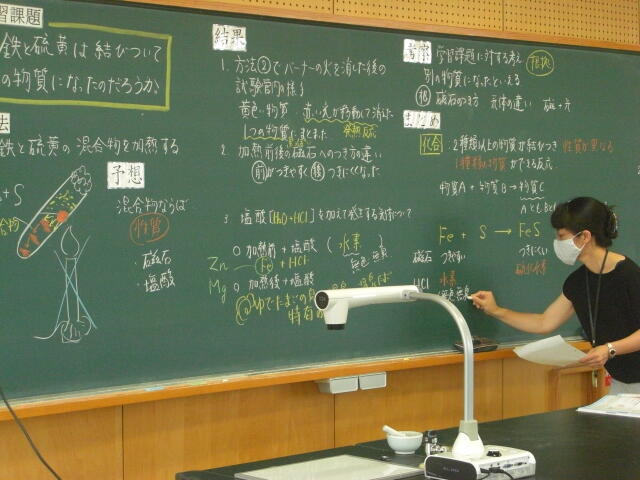 習課題
鉄と硫黄は結びついて
の物質になったのだろうか。
法
鉄と硫黄の混合物を加熱する
+S
予想
混合物ならば
性質
・磁石
・塩酸
結果
1. 方法②でバーナーの火を消した後の
試験管内の様子
黄色い物質 赤い光が移動して消えた
1つの物質にまとまった 発熱反応
2. 加熱前後の磁石へのつき方の違い
前 つきやすく 後 つきにくくなった
3. 塩酸[H2O+HCl]を加えて発生する気体について
○加熱前+塩酸 (水素)
Zn Fe + HCl 無色無臭
Mg ○加熱後+塩酸
ゆでたまごの
特有
考察 学習課題に対する考え 根拠
別の物質になったといえる
磁石のつき方 気体の違い
まとめ
化合 :2種類以上の物質が結びつき 性質が異なる
1種類の物質ができる反応
物質A + 物質B → 物質C
Fe + S → FeS
磁石 つきやすい つきにくい
HCl 水素 硫化水素
(無色無臭